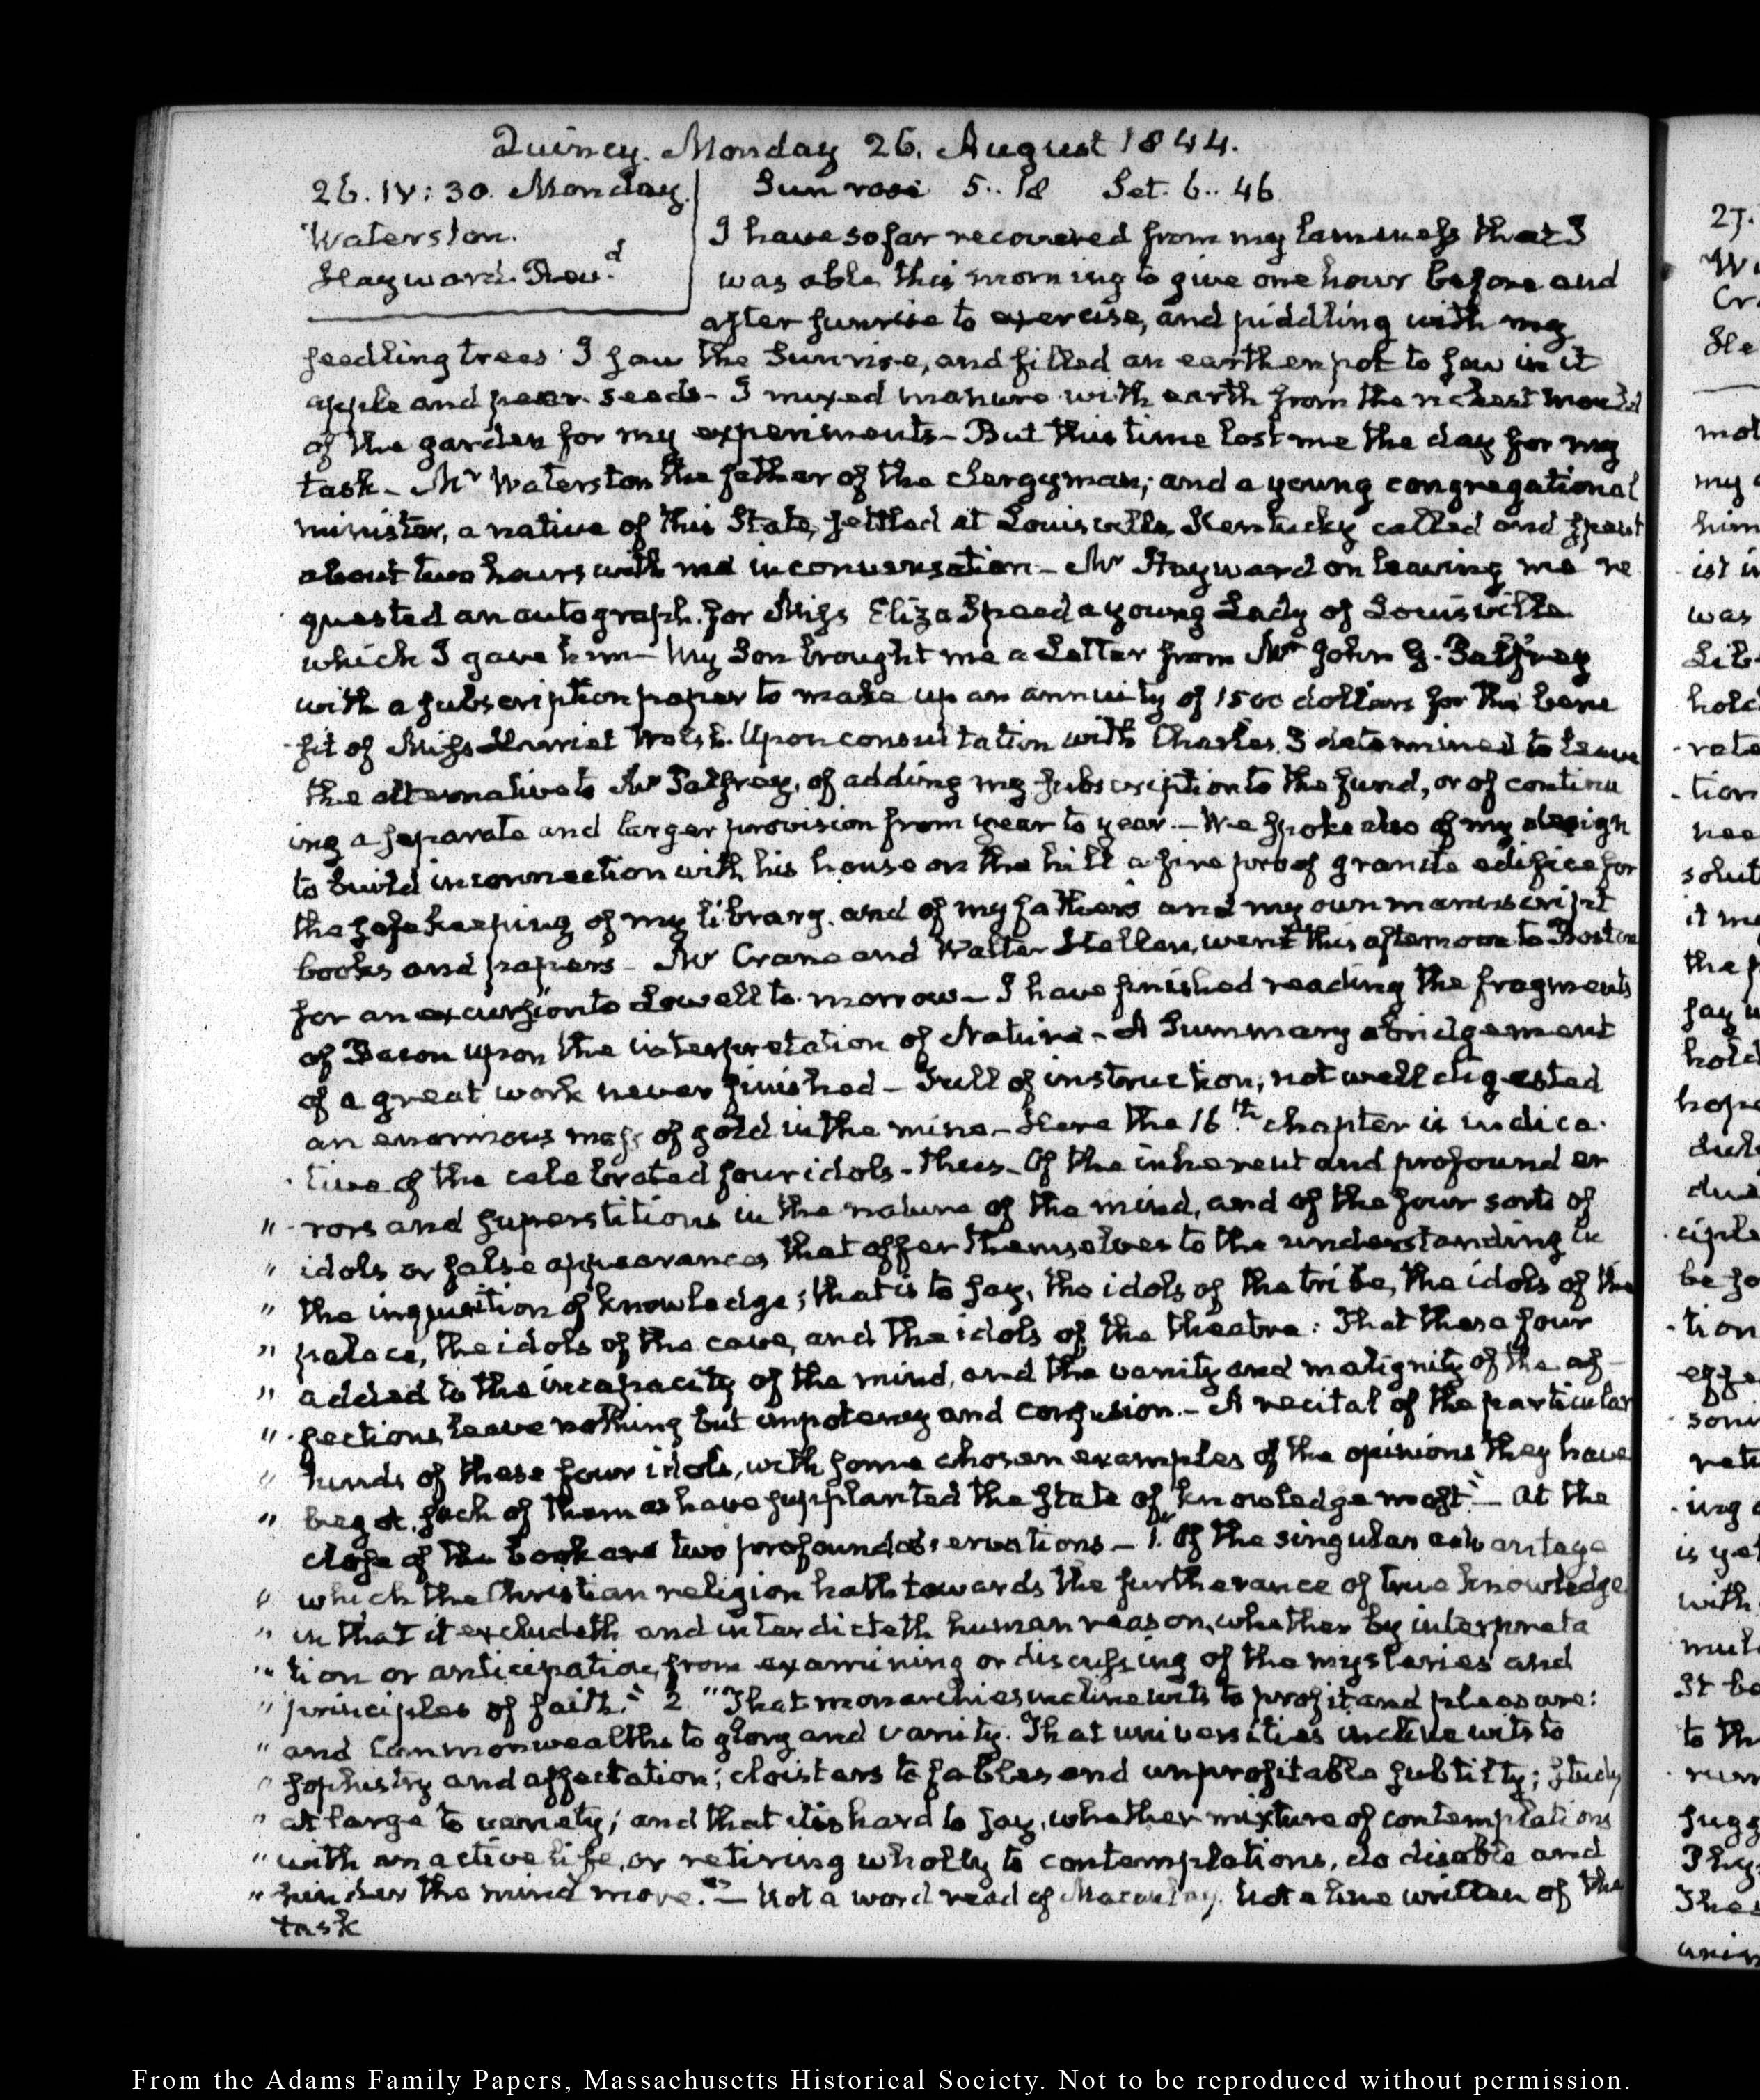 Quincy. Monday 26. August 1844.
26. IV: 30. Monday. Sun rose 5..18 Set. 6..46
Waterston.
Hayward. Rev.d
I have so far recovered from my lameness that I
was able this morning to give one hour before and
after sunrise to exercise, and piddling with my
seedling trees I saw the Sun rise, and filled an earthen pot to sow in it
apple and pear seeds - I mixed manure with earth from the richest mould
of the garden for my experiments - But this time lost me the day for my
task - Mr Waterston the father of the clergyman; and a young congregational
minister, a native of this State, settled at Louisville, Kentucky called and spent
about two hours with me in conversation - Mr Hayward on leaving me re
quested an autograph for Miss Eliza Speed a young Lady of Louisville
which I gave him - My Son brought me a Letter from Mr John G. Palfrey
with a subscription paper to make up an annuity of 1500 dollars for the bene
fit of Miss Harriet Welsh. Upon consultation with Charles I determined to leave
the alternative to Mr Palfrey, of adding my subscription to the fund, or of continu
ing a separate and larger provision from year to year - We spoke also of my design
to build in connection with his house on the hill a fire proof granite edifice for
the safe keeping of my library, and of my father's and my own manuscript
books and papers - Mr Crane and Walter Hellen, went this afternoon to Boston
for an excursion to Lowell to morrow - I have finished reading the fragments
of Bacon upon the interpretation of Nature - A Summary abridgement
of a great work never finished - Full of instruction; not well digested
an enormous mass of gold in the mine - Here the 16th chapter is indica
tive of the celebrated four idols - thus - Of the inherent and profound er
" rors and superstitions in the nature of the mind, and of the four sorts of
" idols or false appearances that offer themselves to the understanding in
" the inquisition of knowledge; that is to say, the idols of the tribe, the idols of the
" palace, the idols of the cave, and the idols of the theatre: That these four
" added to the incapacity of the mind, and the vanity and malignity of the af
" fections, leave nothing but impotency and confusion. - A recital of the particular
" kinds of these four idols, with some chosen examples of the opinions they have
" begot, such of them as have supplanted the state of knowledge most" - At the
close of the book are two profound observations - 1. "Of the singular advantage
" which the Christian religion hath towards the furtherance of true knowledge
" in that it excludeth and interdicteth human reason, whether by interpreta
" tion or anticipation, from examining or discussing of the mysteries and
" principles of faith." 2. "That monarchies incline wits to profit and pleasure:
" and Commonwealths to glory and vanity. That universities incline wits to
" sophistry and affectation; cloisters to fables and unprofitable subtilty; study
" at large to variety; and that it is hard to say, whether mixture of contemplations
" with an active life, or retiring wholly to contemplations, do disable and
" hinder the mind more." - Not a word read of Macaulay. Not a line written of the
task
From the Adams Family Papers, Massachusetts Historical Society. Not to be reproduced without permission.